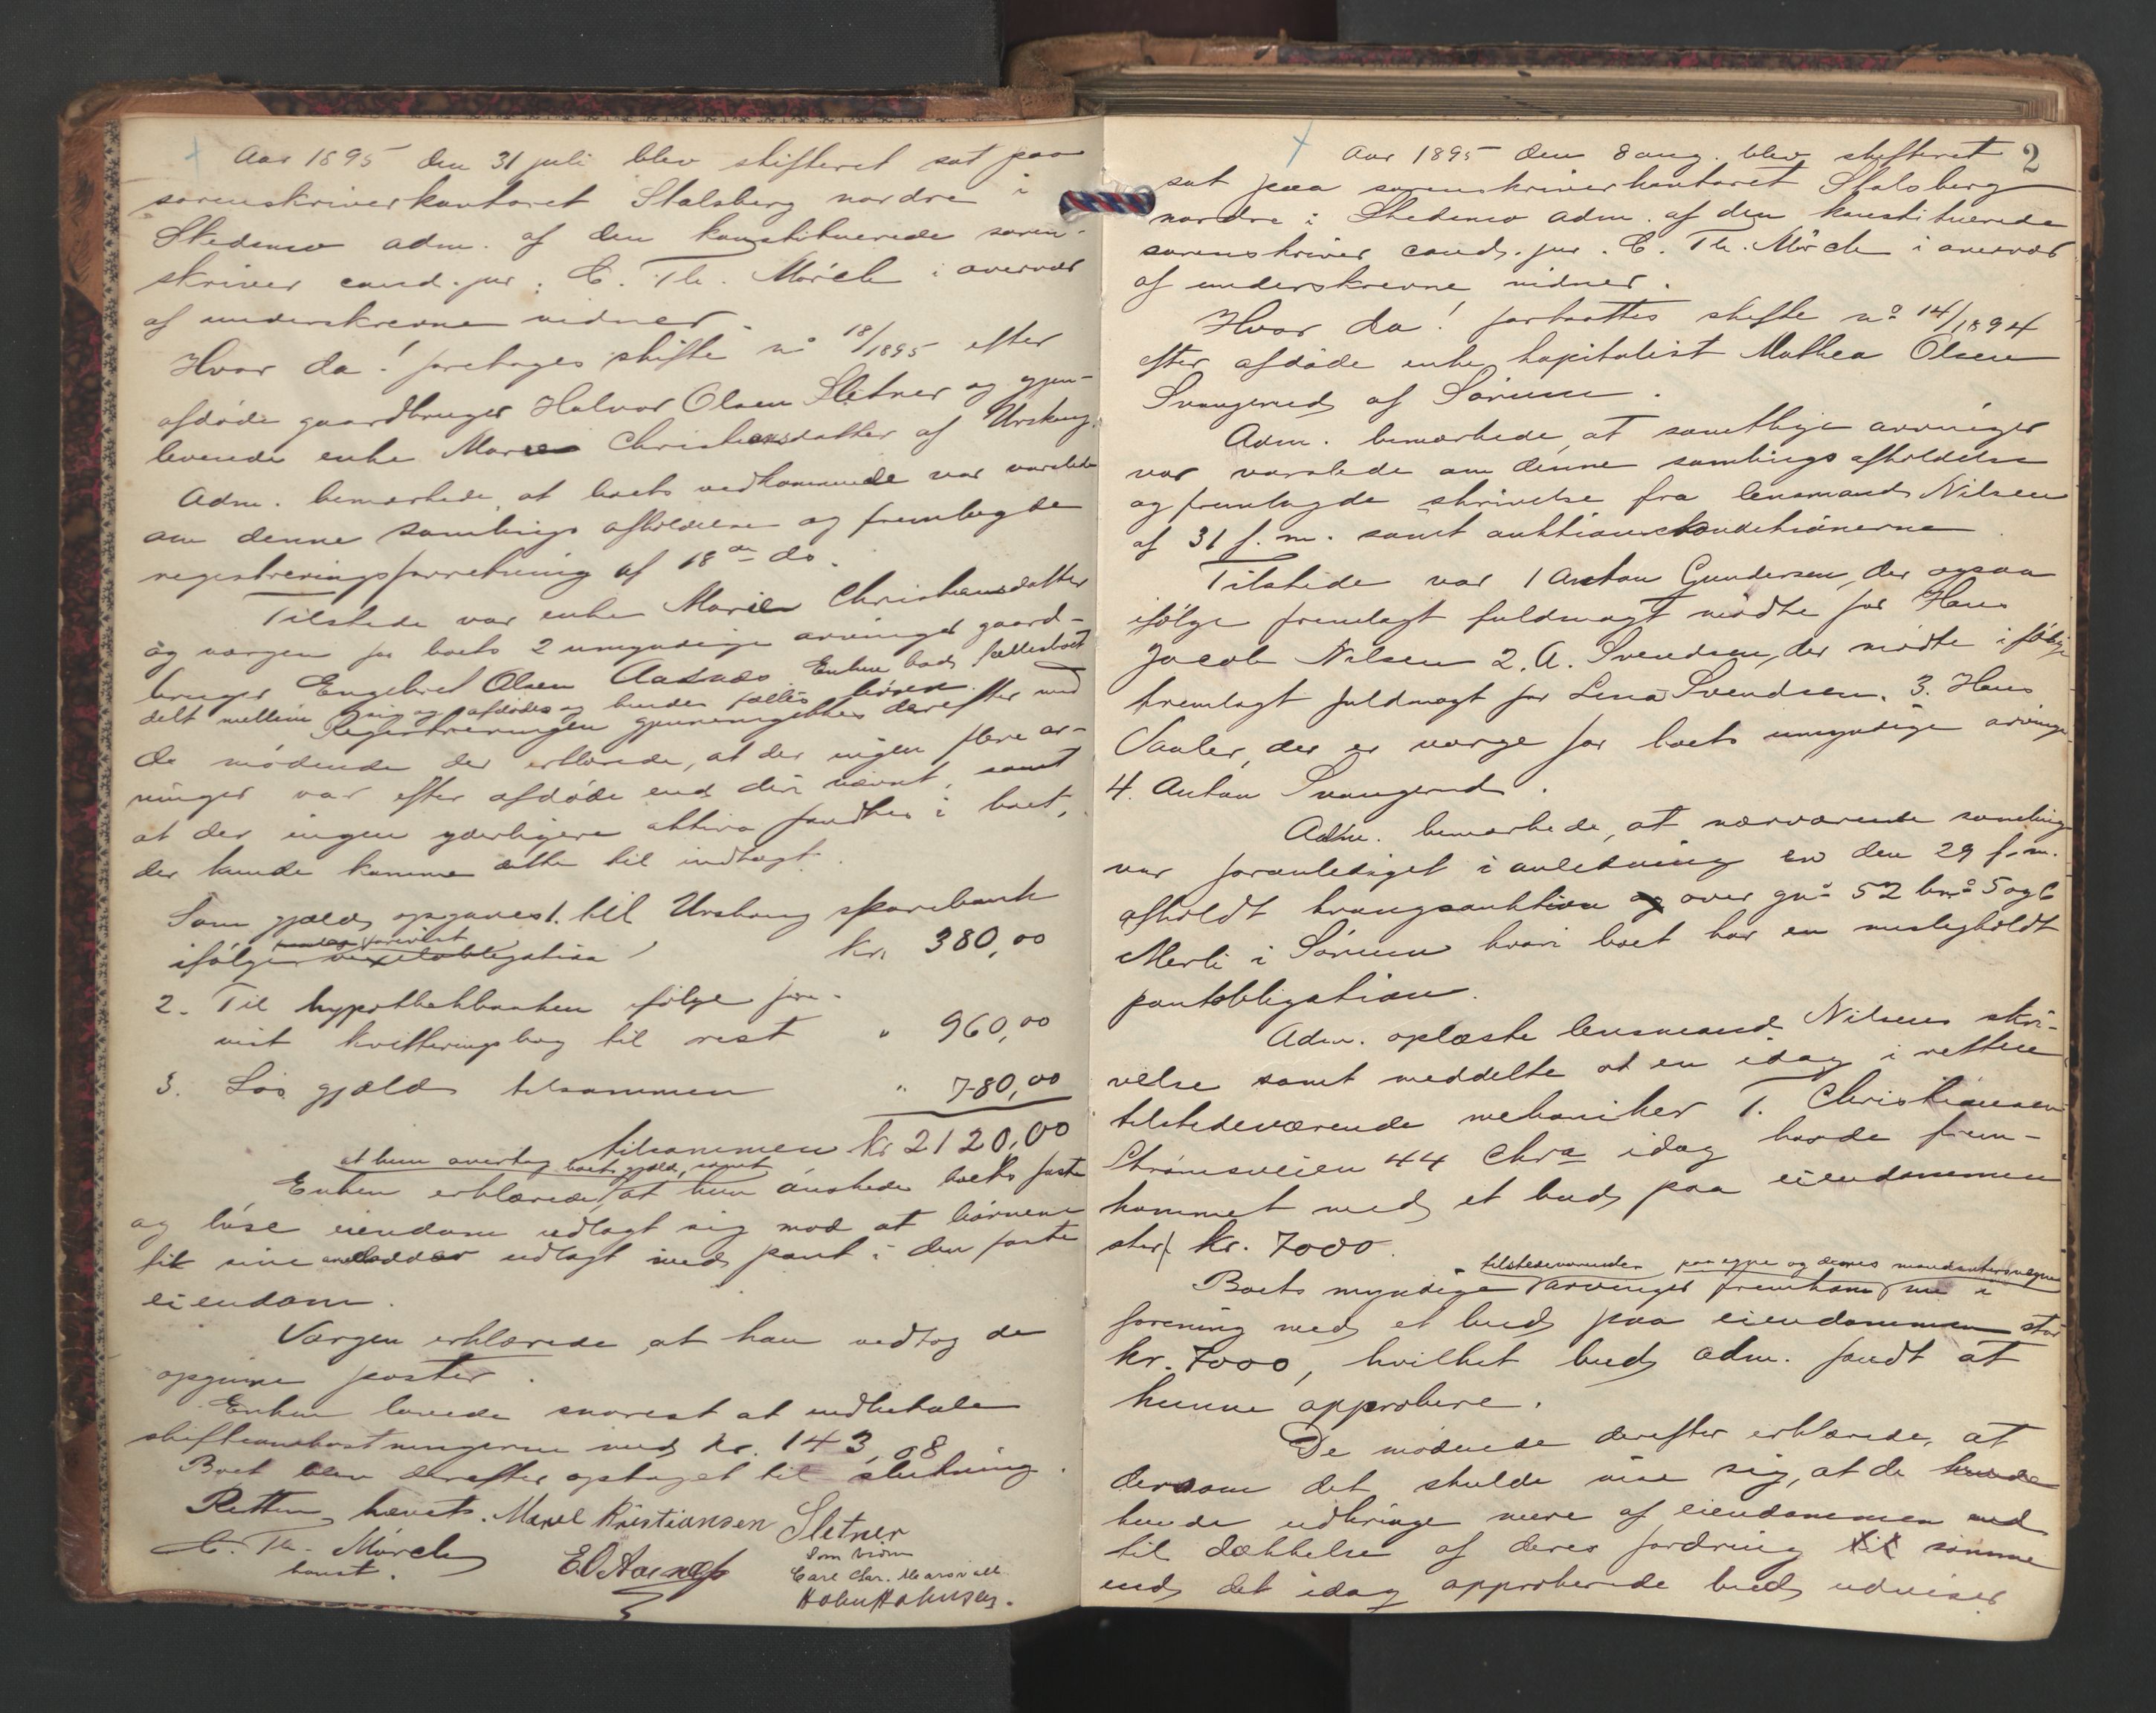 Aar 1895 den 31 juli blev skifteret sat paa
sorenskriverkontoret Stalsberg nordre i
Skedsmo adm. af den konstituerede soren-
skriver cand. jur. C. Th. Mörch i overvær
af underskrevne vidner.
Hvor da! foretoges skifte no 18/1895 efter
afdöde gaardbruger Halvor Olsen Sletner og gjen-
levende enke Maren Christiansdatter af Urskoug.
Adm. bemærkede, at boets vedkommende var varslede
om denne samlings afholdelse og fremlagde
registreringsforretning af 18de ds.
Tilstede var enke Maren Christiansdatter
og vergen for boets 2 umyndige arvinger gaard-
bruger Engebret Olsen Aasnæs. Enken bad fællesboet
delt mellem sig og afdödes og hendes fælles börn.
Registreringen gjennemgikkes derefter med
de mödende der erklærede, at der ingen flere ar-
vinger var efter afdöde end der nævnt, samt
at der ingen yderligere aktiva fandtes i boet,
der kunde komme dette til indtægt.
Som gjæld opgaves 1. til Urskoug sparebank
ifölge vexelobligation kr. 380,00
2. Til hypothekbanken ifölge fore-
vist kvitteringsbog til rest " 960,00
3. Lös gjæld tilsammen " 780,00
tilsammen kr 2120,00
at hun overtog boets gjæld, samt
Enken erklærede, at hun önskede boets faste
og löse eiendom udlagt sig mod at börnene
fik sine arvelodder udlagt med pant i den faste
eiendom.
Vergen erklærede at han vedtog de
opgivne poster.
Enken lovede snarest at indbetale
skifteomkostningerne med kr. 143,08
Boet blev derefter optaget til slutning.
Retten hævet. Marel Kristiansen Sletner
C. Th. Mörch EOAasnæss Som vidne
konst. Carl Chr.
2
Aar 1895 den 8 aug. blev skifteret
sat paa sorenskriverkontoret Stalsberg
nordre i Skedsmo adm. af den konstituerede
sorenskriver cand. jur. C. Th. Mörch i overvær
af underskrevne vidner.
Hvor da! fortsattes skifte no 14/1894
efter afdöde enke, kapitalist Mathea Olsen
Svangerud af Sörum.
Adm. bemærkede, at samtlige arvinger
var varslede om denne samlings afholdelse
og fremlagde skrivelse fra lensmand Nilsen
af 31 f. m. samt auktionskonditionerne
Tilstede var 1 Anton Gundersen, der ogsaa
ifölge fremlagt fuldmagt mödte for Hans
Jacob Nilsen 2. A. Svendsen, der mödte ifölge
fremlagt fuldmagt for Lina Svendsen. 3. Hans
Vaaler, der er verge for boets umyndige arvinge
4. Anton Svangerud.
Adm. bemærkede, at nærværende samling
var foranlediget i anledning en den 29 f. m.
afholdt tvangsauktion og over gno 52 bno 5 og 6
Merli i Sörum hvori boet har en misligholdt
pantobligation.
Adm. oplæste lensmand Nilsens skri-
velse samt meddelte at en idag i retten
tilstedeværende mekaniker T. Christiansen
Strömsveien 44 Chra idag havde frem-
kommet med et bud paa eiendommen
stort kr. 7000.
tilstedeværende paa egne og deres mandanters vegne
Boets myndige arvinger fremkom nu i
forening med et bud paa eiendommen stor
kr. 7000, hvilket bud adm. fandt at
kunne approbere.
De mödende derefter erklærede, at
dersom det skulde vise sig, at de kunde
kunde udbringe mere af eiendommen end
til dækkelse af deres fordring til samme
end det idag approberede bud udviser